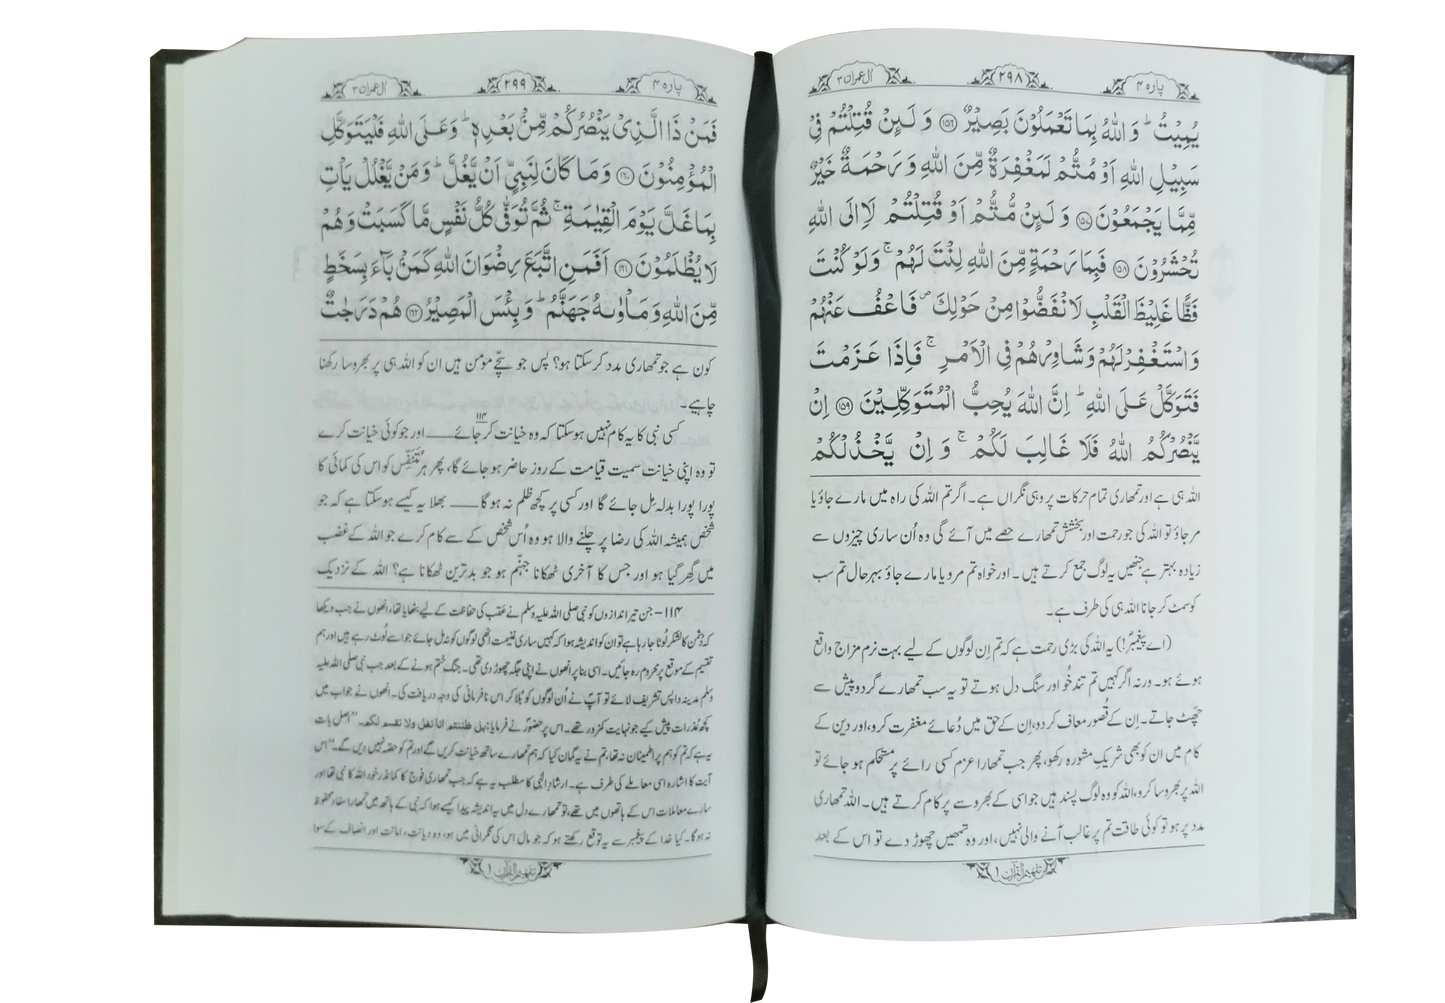 پارہ ۴
۲۹۸
آل عمران ۳
یُمِیْتُ ؕ وَ اللّٰهُ بِمَا تَعْمَلُوْنَ بَصِیْرٌ ﴿۱۵۶﴾ وَ لَىِٕنْ قُتِلْتُمْ فِیْ
سَبِیْلِ اللّٰهِ اَوْ مُتُّمْ لَمَغْفِرَةٌ مِّنَ اللّٰهِ وَ رَحْمَةٌ خَیْرٌ
مِّمَّا یَجْمَعُوْنَ ﴿۱۵۷﴾ وَ لَىِٕنْ مُّتُّمْ اَوْ قُتِلْتُمْ لَاۡاِلَی اللّٰهِ
تُحْشَرُوْنَ ﴿۱۵۸﴾ فَبِمَا رَحْمَةٍ مِّنَ اللّٰهِ لِنْتَ لَهُمْ ۚ وَ لَوْ كُنْتَ
فَظًّا غَلِیْظَ الْقَلْبِ لَا نْفَضُّوْا مِنْ حَوْلِكَ ۪ فَاعْفُ عَنْهُمْ
وَ اسْتَغْفِرْ لَهُمْ وَ شَاوِرْهُمْ فِی الْاَمْرِ ۚ فَاِذَا عَزَمْتَ
فَتَوَكَّلْ عَلَی اللّٰهِ ؕ اِنَّ اللّٰهَ یُحِبُّ الْمُتَوَكِّلِیْنَ ﴿۱۵۹﴾ اِنْ
یَّنْصُرْكُمُ اللّٰهُ فَلَا غَالِبَ لَكُمْ ۚ وَ اِنْ یَّخْذُلْكُمْ
اللہ ہی ہے اور تمھاری تمام حرکات پر وہی نگراں ہے۔ اگر تم اللہ کی راہ میں مارے جاؤ یا
مر جاؤ تو اللہ کی جو رحمت اور بخشش تمھارے حصے میں آئے گی وہ اُن ساری چیزوں سے
زیادہ بہتر ہے جنھیں یہ لوگ جمع کرتے ہیں۔ اور خواہ تم مرو یا مارے جاؤ بہر حال تم سب
کو سمٹ کر جانا اللہ ہی کی طرف ہے۔
(اے پیغمبرؐ!) یہ اللہ کی بڑی رحمت ہے کہ تم اِن لوگوں کے لیے بہت نرم مزاج واقع
ہوئے ہو۔ ورنہ اگر کہیں تم تند خُو اور سنگ دل ہوتے تو یہ سب تمھارے گرد و پیش سے
چھٹ جاتے۔ اِن کے قصور معاف کردو، اِن کے حق میں دُعائے مغفرت کرو، اور دین کے
کام میں ان کو بھی شریکِ مشورہ رکھو، پھر جب تمھارا عزم کسی رائے پر مستحکم ہو جائے تو
اللہ پر بھروسا کرو، اللہ کو وہ لوگ پسند ہیں جو اسی کے بھروسے پر کام کرتے ہیں۔ اللہ تمھاری
مدد پر ہو تو کوئی طاقت تم پر غالب آنے والی نہیں، اور وہ تمھیں چھوڑ دے تو اس کے بعد
تفہیم القرآن ۱
پارہ ۴
۲۹۹
آل عمران ۳
فَمَنْ ذَا الَّذِیْ یَنْصُرُكُمْ مِّنْۢ بَعْدِهٖ ؕ وَ عَلَی اللّٰهِ فَلْیَتَوَكَّلِ
الْمُؤْمِنُوْنَ ﴿۱۶۰﴾ وَ مَا كَانَ لِنَبِیٍّ اَنْ یَّغُلَّ ؕ وَ مَنْ یَّغْلُلْ یَاْتِ
بِمَا غَلَّ یَوْمَ الْقِیٰمَةِ ۚ ثُمَّ تُوَفّٰی كُلُّ نَفْسٍ مَّا كَسَبَتْ وَ هُمْ
لَا یُظْلَمُوْنَ ﴿۱۶۱﴾ اَفَمَنِ اتَّبَعَ رِضْوَانَ اللّٰهِ كَمَنْۢ بَآءَ بِسَخَطٍ
مِّنَ اللّٰهِ وَ مَاْوٰىهُ جَهَنَّمُ ؕ وَ بِئْسَ الْمَصِیْرُ ﴿۱۶۲﴾ هُمْ دَرَجٰتٌ
کون ہے جو تمھاری مدد کر سکتا ہو؟ پس جو سچّے مومن ہیں ان کو اللہ ہی پر بھروسا رکھنا
چاہیے۔
کسی نبی کا یہ کام نہیں ہو سکتا کہ وہ خیانت کر جائے ۱۱۴ــــــ اور جو کوئی خیانت کرے
تو وہ اپنی خیانت سمیت قیامت کے روز حاضر ہو جائے گا، پھر ہر مُتَنَفِّس کو اس کی کمائی کا
پورا پورا بدلہ مِل جائے گا اور کسی پر کچھ ظلم نہ ہو گا ــــــ بھلا یہ کیسے ہو سکتا ہے کہ جو
شخص ہمیشہ اللہ کی رضا پر چلنے والا ہو وہ اُس شخص کے سے کام کرے جو اللہ کے غضب
میں گھر گیا ہو اور جس کا آخری ٹھکانا جہنّم ہو جو بدترین ٹھکانا ہے؟ اللہ کے نزدیک
۱۱۴- جن تیر اندازوں کو نبی صلی اللہ علیہ وسلم نے عقب کی حفاظت کے لیے بٹھایا تھا، انھوں نے جب دیکھا
کہ دشمن کا لشکر لُوٹا جا رہا ہے تو ان کو اندیشہ ہوا کہ کہیں ساری غنیمت انھی لوگوں کو نہ مل جائے جو اسے لُوٹ رہے ہیں اور ہم
تقسیم کے موقع پر محروم رہ جائیں۔ اسی بنا پر انھوں نے اپنی جگہ چھوڑ دی تھی۔ جنگ ختم ہونے کے بعد جب نبی صلی اللہ علیہ
وسلم مدینہ واپس تشریف لائے تو آپؐ نے اُن لوگوں کو بُلا کر اس نافرمانی کی وجہ دریافت کی۔ انھوں نے جواب میں
کچھ عذرات پیش کیے جو نہایت کمزور تھے۔ اس پر حضورؐ نے فرمایا: بل ظننتم انا نغل ولا نقسم لکم۔ ’’اصل بات
یہ ہے کہ تم کو ہم پر اطمینان نہ تھا، تم نے یہ گمان کیا کہ ہم تمھارے ساتھ خیانت کریں گے اور تم کو حصّہ نہیں دیں گے۔‘‘ اس
آیت کا اشارہ اسی معاملے کی طرف ہے۔ ارشادِ الٰہی کا مطلب یہ ہے کہ جب تمھاری فوج کا کمانڈر خود اللہ کا نبی تھا اور
سارے معاملات اس کے ہاتھوں میں تھے، تو تمھارے دل میں یہ اندیشہ پیدا کیسے ہوا کہ نبی کے ہاتھ میں تمھارا مفاد محفوظ
نہ ہو گا۔ کیا خدا کے پیغمبر سے یہ توقع رکھتے ہو کہ جو مال اس کی نگرانی میں ہو، وہ دیانت، امانت اور انصاف کے سوا
تفہیم القرآن ۱